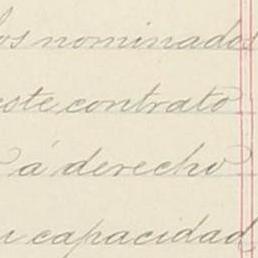 los nominados
este contrato
á derecho
capacidad